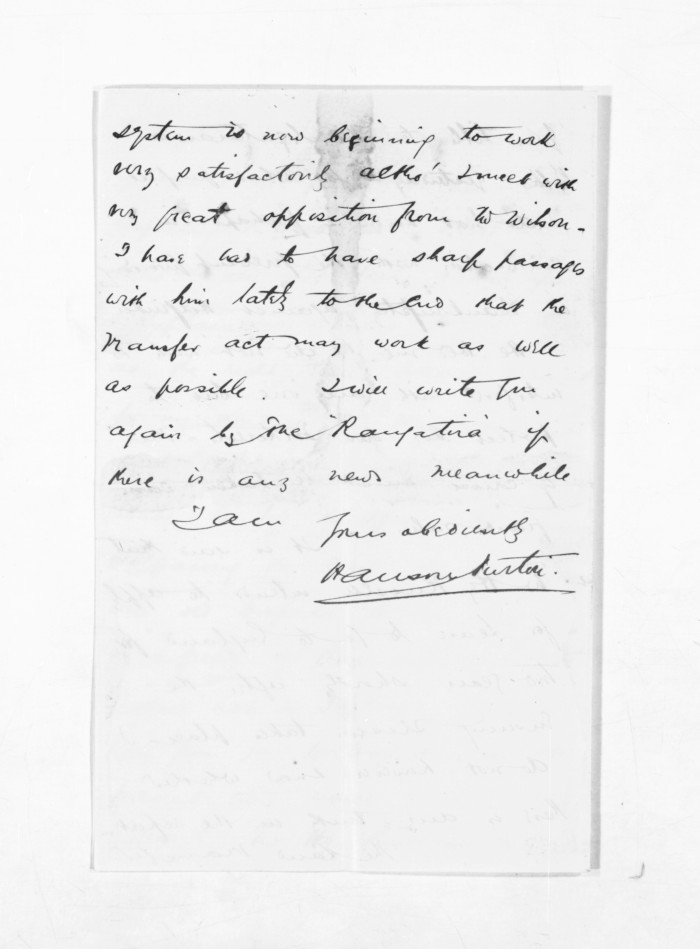 system is now beginning to work
very satisfactorily altho' I meet with
very great opposition from Mr Wilson -
I have had to have sharp passages
with him lately to the end that the
Transfer act may work as well
as possible. I will write you
again by the 'Rangatira' if
there is any news meanwhile
I am yours obediently
Hanson Turton.